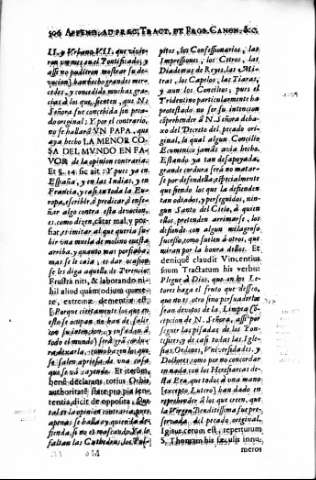 506 APPEND. AD PRÆC. TRACT. ET PROP. CANON. &c.
II. y Urbano VII. que vivie-
ron un mes en el Pontificado, y
assi no pudieron mostrar su de-
vocion) han hecho grandes mer-
cedes, y concedido muchas gra-
cias à los que sienten, que N.
Señora fue concebida sin peca-
do original: Y por el contrario,
no se hallarà UN PAPA, que
aya hecho LA MENOR CO-
SA DEL MUNDO EN FA-
VOR de la opinion contraria:
Et §. 14. sic ait: Y pues ya en
España, y en las Indias, y en
Francia, y casi en toda la Euro-
pa, escribir, ò predicar, ò ense-
ñar algo contra esta devocion,
es, como dizen, citar mal, y por-
fiar, es imitar al que queria su-
bir una muela de molino cuesta
arriba, y quanto mas porfiaba,
mas se le caia, es dar ocasion
se les diga aquello de Terencio:
Frustrà niti, & laborando ni-
hil aliud quàm odium quære-
re, extremæ dementiæ est:
Porque ciertamente los que en
esto se ocupan no han de salir
con su intencion, y enfadan à
todo el mundo)
se salen aprisa de una casa
que se và cayendo. Et iterùm,
benè declarans totius Orbis
authoritatè stare pro pia sen-
tentia, dicit de opposita: Que
tal es la opinion contraria, que
apenas se halla ay quien la de-
fienda, no es mofeando. Ya le
faltan las Cathedras, los Pul-
pitos, los Confessonarios, las
Impressiones, los Cetros, las
Diademas de Reyes, las Mi-
tras, los Capelos, las Tiaras,
y aun los Concilios; pues el
Tridentino particularmente ha
protestado no ser su intencion
comprehender à N. Señora deba-
xo del Decreto del pecado ori-
ginal, lo qual algun Concilio
Ecumenico jamàs avia hecho.
Estando ya tan desapoyada,
grande cordura serà no matar-
se por defenderla, especialmente
que siendo los que la defienden
tan odiados, y perseguidos, nin-
gun Santo del Cielo, à quien
ellos pretenden arrimarse, los
defiende con algun milagroso
sucesso, como suelen à otros, que
miran por la honra dellos. Et
deniquè claudit Vincentius
suum Tractatum his verbis:
Plegue à Dios, que en los Le-
tores haga el fruto que desseo,
que no es otro sino persuadirles
sean devotos de la Limpia Con-
cepcion de N. Señora, assi por
seguir las pisadas de los Pon-
tifices, y de casi todas las Igle-
sias, Ordenes, Universidades, y
Doctores; como por no concordar
en nada con los Heresiarcas de
esta Era, que todos à una mano
(excepto Lutero) han dado en
reprehender à los que creen, que
la Virgen Benditissima fue pre-
servada del pecado original.
Igitur certum est, repertorum
S. Thomam his sæculis innu-
meros